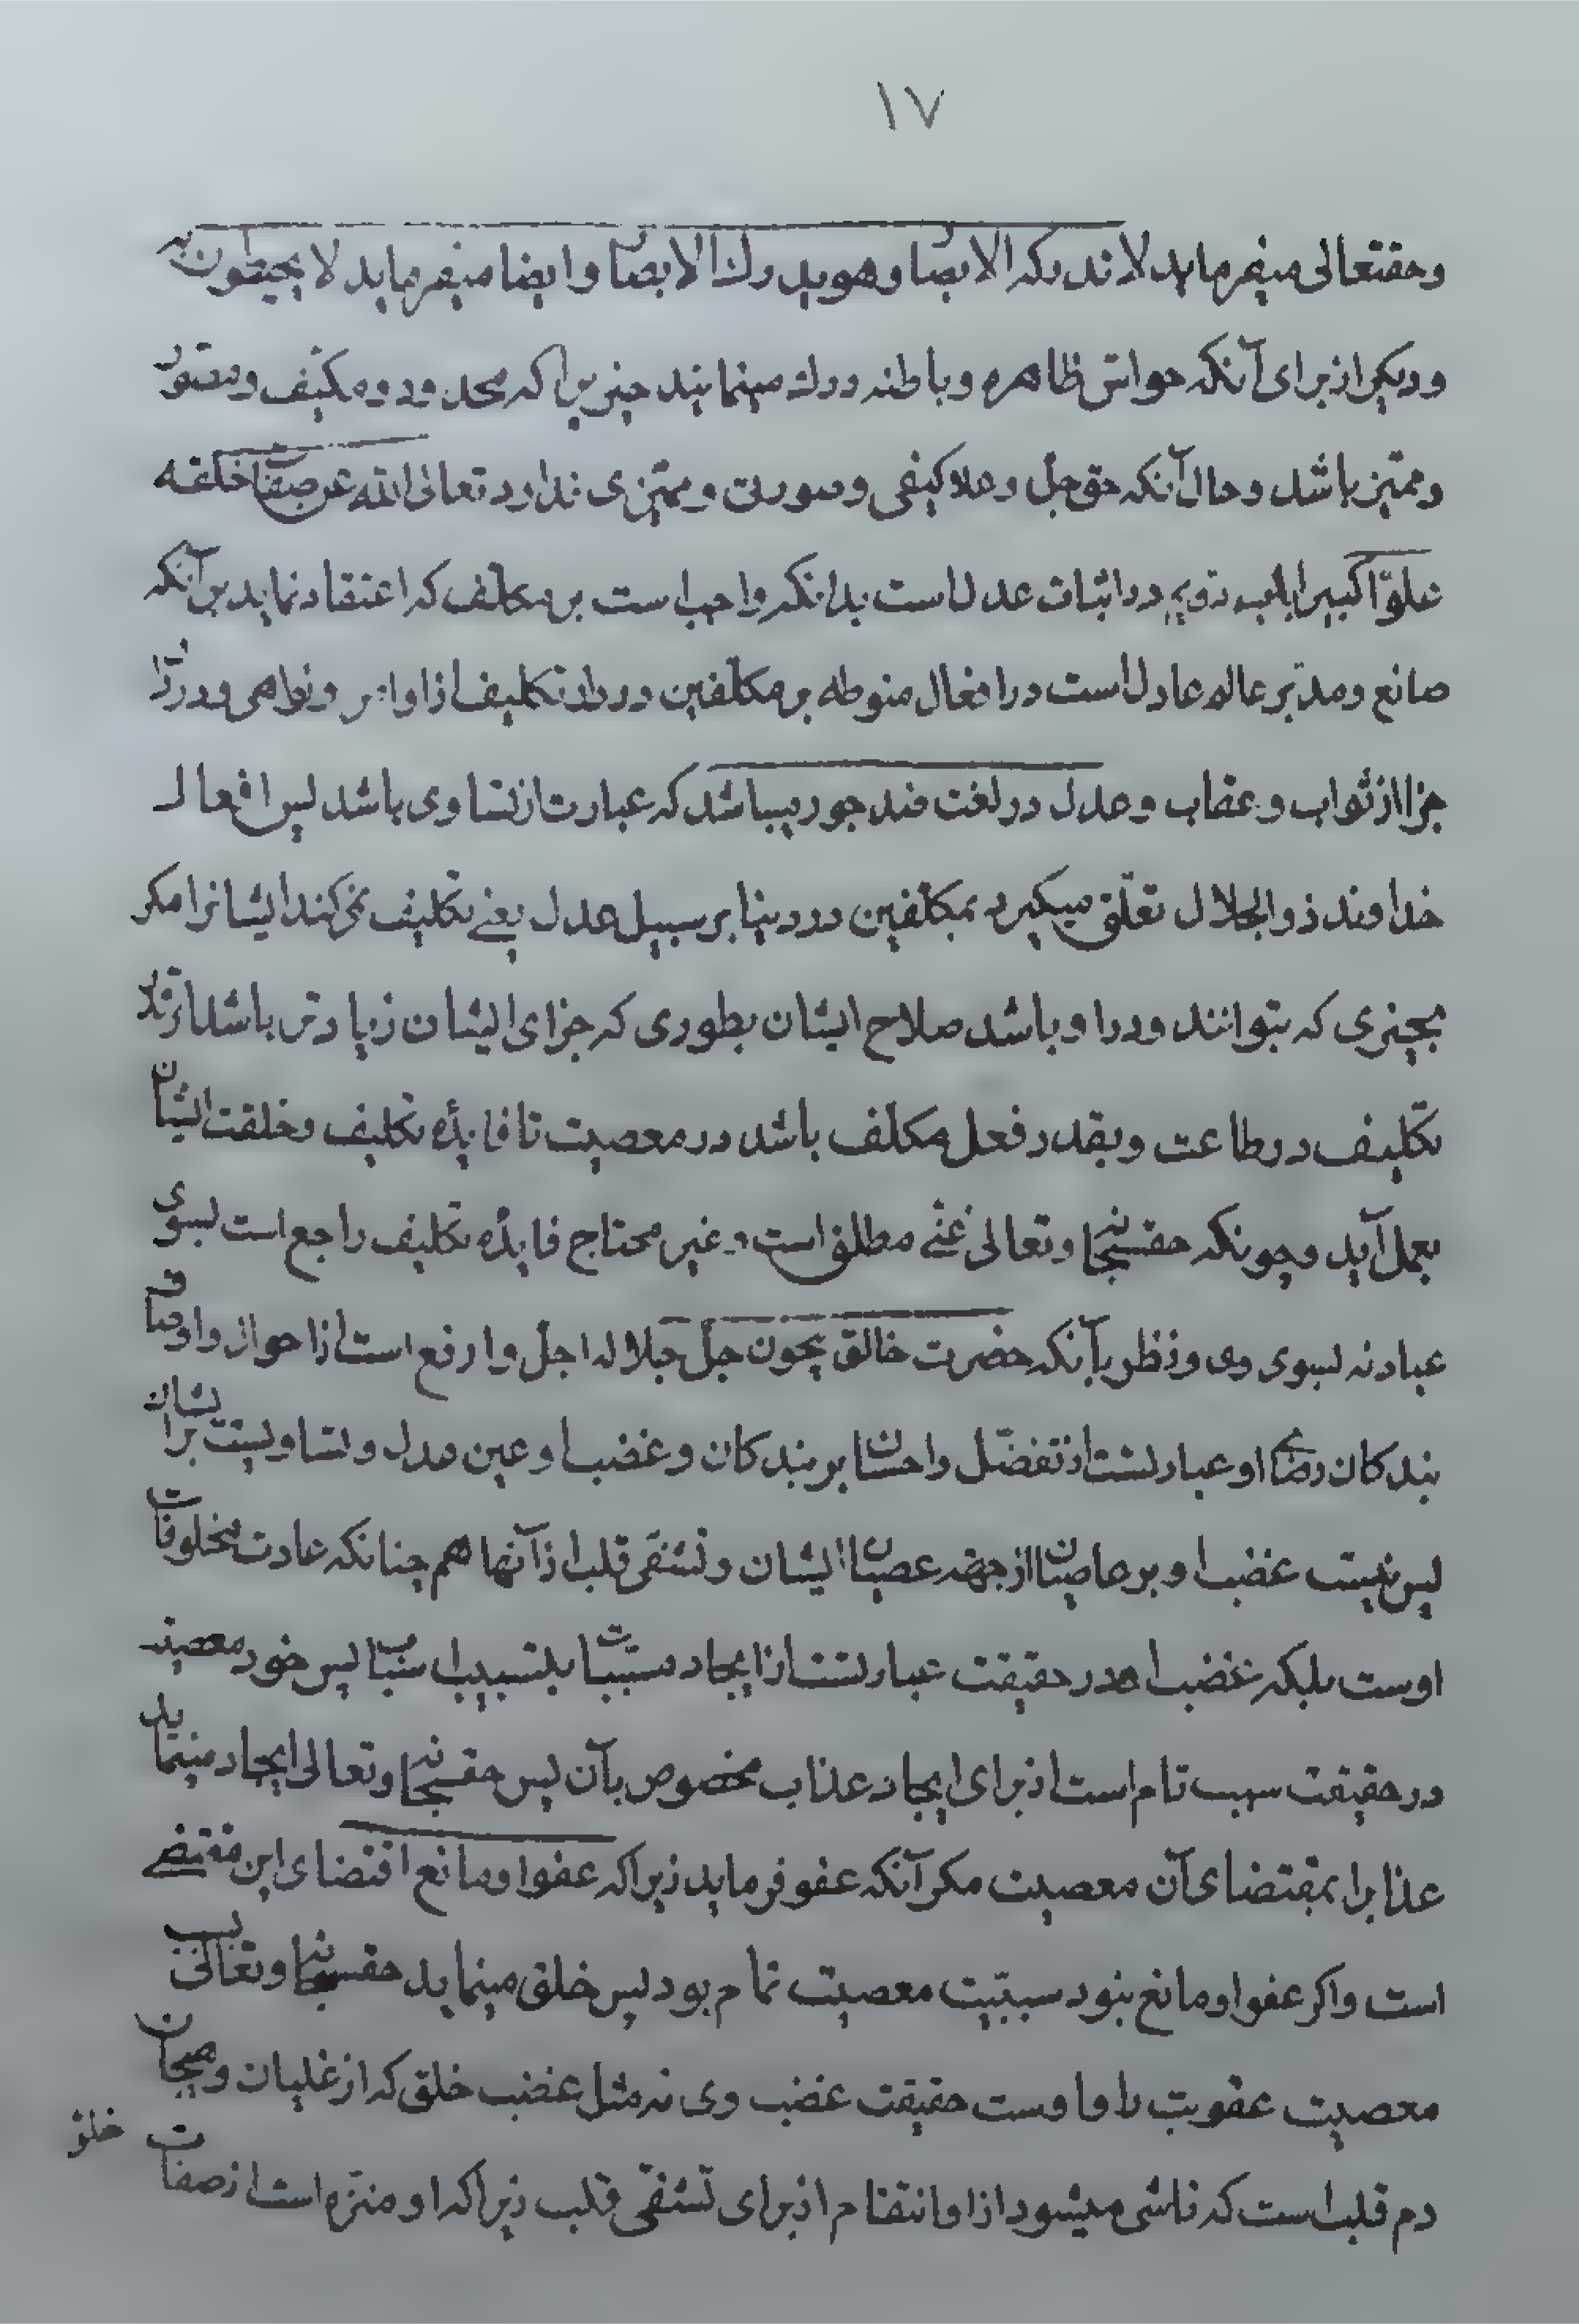 ١٧
وحقتعالی میفرماید لاتدرکه الابصار وهو یدرك الابصار وایضا میفرماید لا یحیطون به
ودیکر از برای آنکه حواس ظاهره وباطنه درك مینمایند چیزیرا که محدود ومکیف ومصور
وممیز باشد وحال آنکه حق جل وعلا کیفی وصورت وممیزی ندارد تعالی الله عن صفات خلقه
علوّا کبیرا باب دویم در اثبات عدل است بدانکه واجب است بر مکلف که اعتقاد نماید بر آنکه
صانع ومدبر عالم عادل است در افعال منوطه بر مکلفین در دار تکلیف از اوامر ونواهی ودر دار
جزا از ثواب وعقاب وعدل در لغت ضد جور میباشد که عبارت از تساوی باشد پس افعال
خداوند ذوالجلال تعلّق میکیرد بمکلفین در دنیا بر سبیل عدل یعنے تکلیف نمیکند ایشانرا مکر
بچیزی که بتوانند ودر او باشد صلاح ایشان بطوری که جزای ایشان زیادتر باشد از
تکلیف در طاعت وبقدر فعل مکلف باشد در معصیت تا فایدهٔ تکلیف وخلقت ایشان
بعمل آید وچونکه حقسبحانه وتعالی غنے مطلق است وغیر محتاج فایدهٔ تکلیف راجع است بسوی
عباد نه بسوی وی ونظر بآنکه حضرت خالق بیچون جل جلاله اجل وارفع است از احوال واوصاف
بندکان رضای او عبارتست از تفضّل واحسان بر بندکان وغضب او عین عدل وتساویست بر ایشان
پس نیست غضب او بر عاصیان از جهة عصیان ایشان وتشفی قلب از آنها هم چنانکه عادت مخلوقات
اوست بلکه غضب او در حقیقت عبارتست از ایجاد مسببات بتسبیب اسباب پس خود معصیت
در حقیقت سبب تام است از برای ایجاد عذاب مخصوص بآن پس حقسبحانه وتعالی ایجاد مینماید
عذابرا بمقتضای آن معصیت مکر آنکه عفو فرماید زیرا که عفو او مانع اقتضای این مقتضے
است واکر عفو او مانع نبود سببیت معصیت تمام بود پس خلق مینماید حقسبحانه وتعالی بسبب
معصیت عقوبت را واوست حقیقت غضب وی نه مثل غضب خلق که از غلیان وهیجان
دم قلب است که ناشی میشود از او انتقام از برای تشفّی قلب زیرا که او منزّه است از صفات
خلق